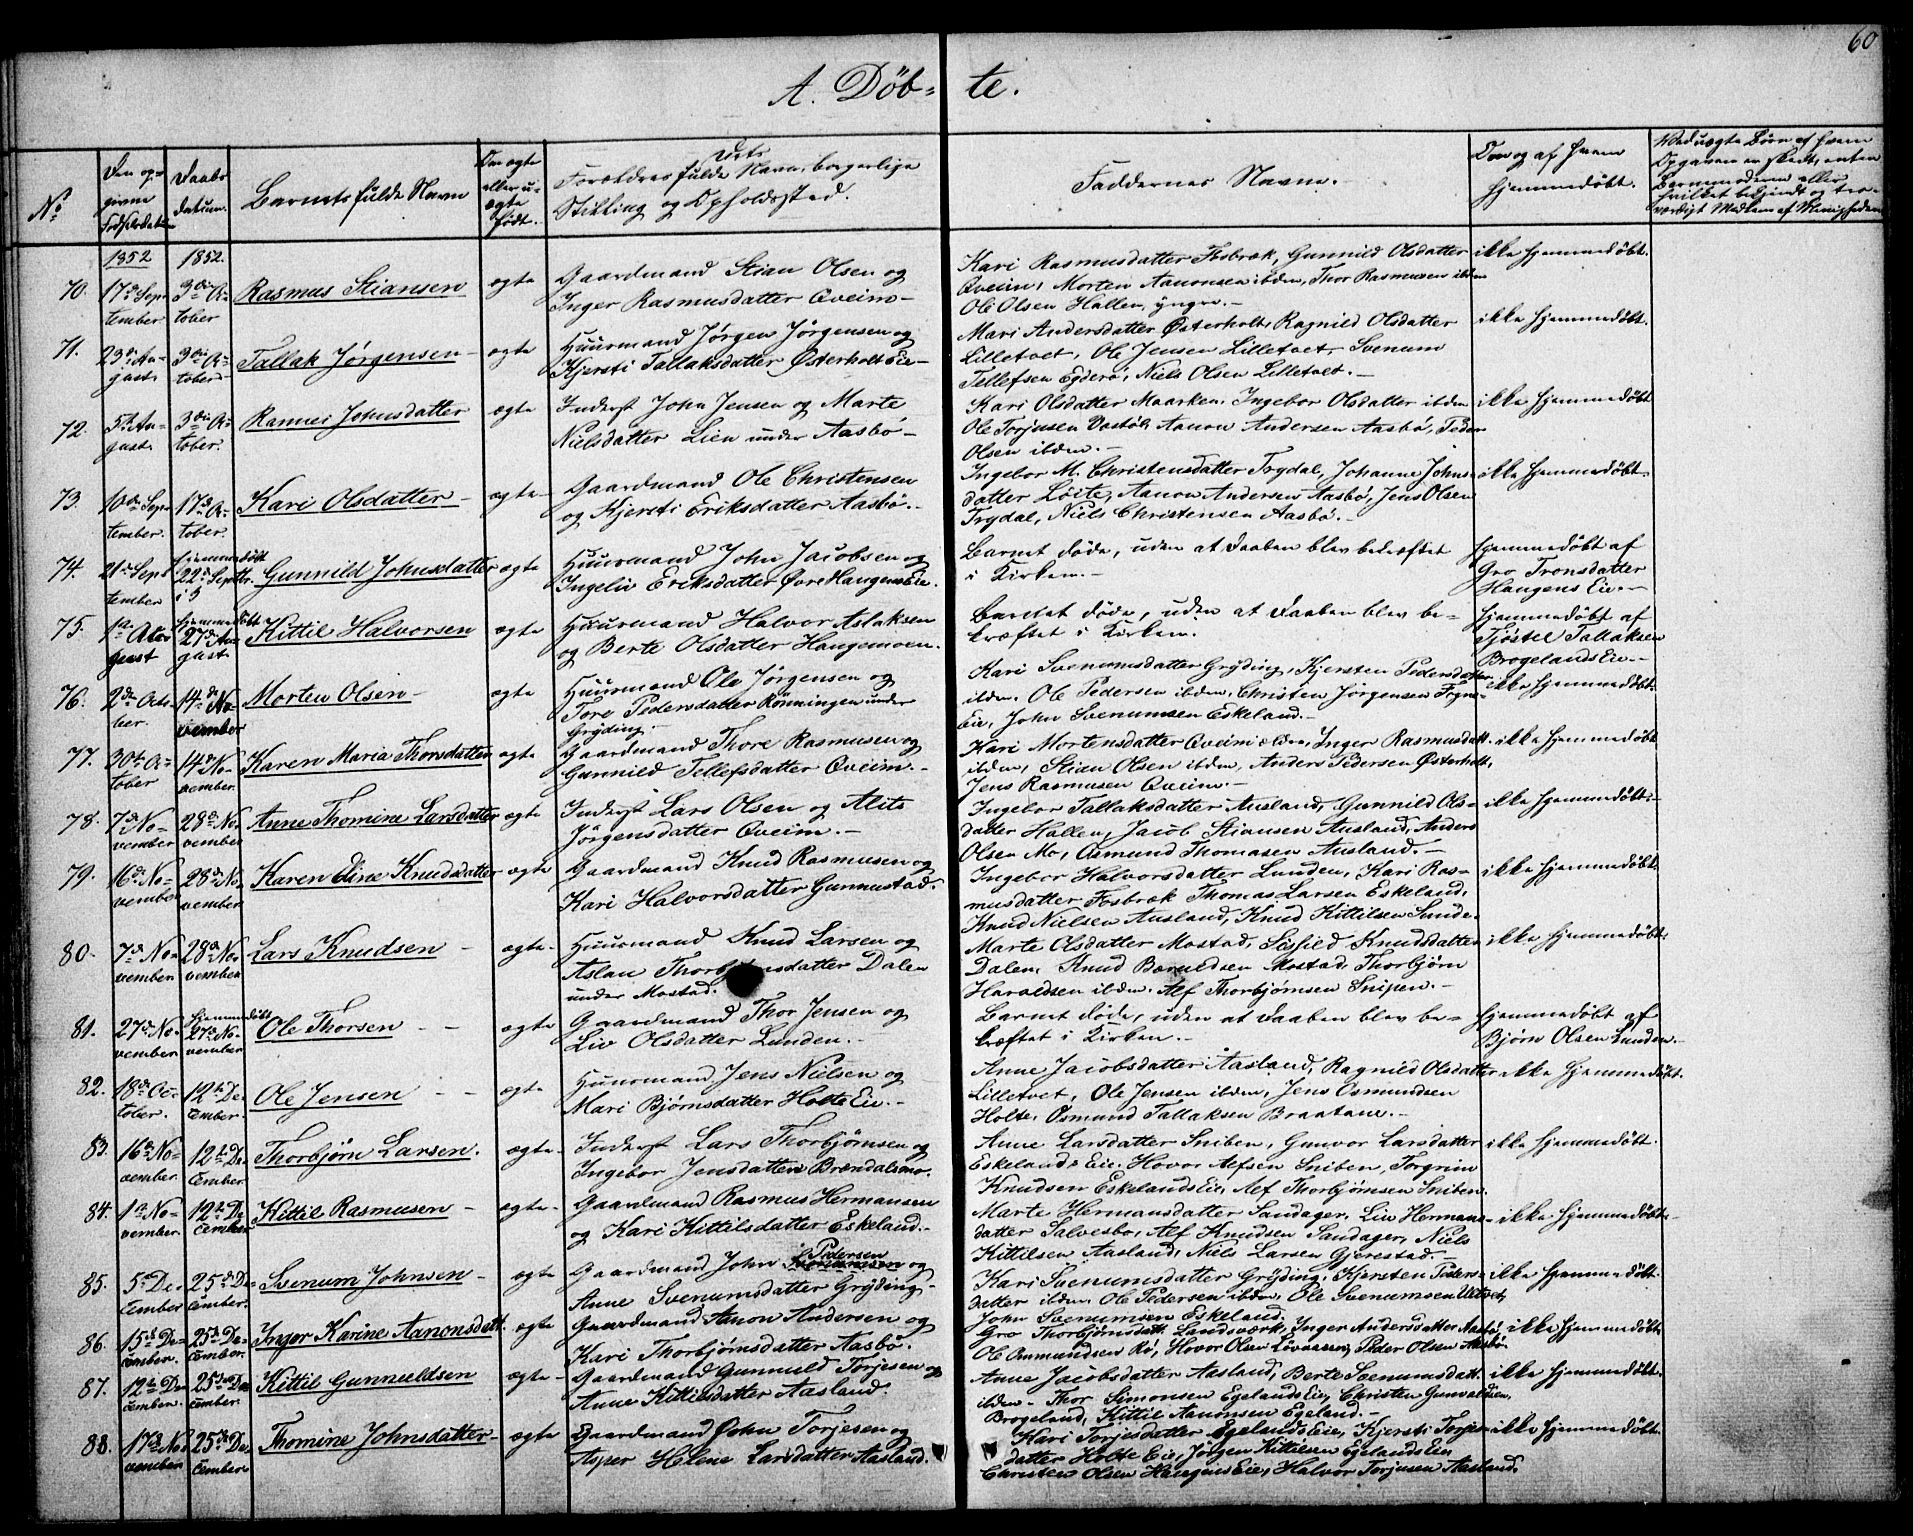 60
A. Döbte.
No
Den opgivne Fødselsdatum
Daabsdatum.
Barnets fulde Navn
Om ægte eller uægte født.
Forældres fulde Navn, borgerlige Stilling og Opholdssted.
Faddernes Navne.
Om og af hvem hjemmedøbt.
1852 1852.
70. 17de September 3die October Rasmus Stiansen ægte
Gaardmand Stian Olsen og
Inger Rasmusdatter Qveim
Kari Rasmusdatter Fosbræk, Gunnild Olsdatter
Qveim, Morten Aanonsen ibdm, Thor Rasmusen ibdm
Ole Olsen Hallen, yngre.
ikke hjemmedøbt.
71. 23de August 3die October Tallak Jørgensen ægte
Huusmand Jørgen Jørgensen og
Kjersti Tallaksdatter Østerholt Eie
Mari Andersdatter Østerholt, Ragnild Olsdatter
Lilletvet, Ole Jensen Lilletvet, Svenum
Tellefsen Egderø, Niels Olsen Lilletvet.
ikke hjemmedøbt.
72. 5te August 3die October. Rannei Johnsdatter ægte
Inderst John Jensen og Marte
Nielsdatter Lien under Aasbø
Kari Olsdatter Maarken, Ingebor Olsdatter ibdm
Ole Torjusen Vastøl, Aanon Andersen Aasbø, Peder
Olsen ibdm.
ikke hjemmedøbt
73. 10de September. 17de October. Kari Olsdatter ægte
Gaardmand Ole Christensen
og Kjersti Eriksdatter Aasbø.
Ingebor M. Christensdatter Trydal, Johanne Johnsdatter
Løite, Aanon Andersen Aasbø, Jens Olsen
Trydal, Niels Christensen Aasbø.
ikke hjemmedøbt
74. 21de September hjemmedøbt 22de Septbr. Gunnild Johnsdatter ægte
Huusmand John Jacobsen og
Ingeliv Eriksdatter Øvre Haugens Eie.
Barnet døde, uden at Daaben blev bekræftet
i Kirken.
Hjemmedøbt af
Gro Tronsdatter
Haugens Eie
75. hjemmedøbt 27de August Kittil Halvorsen ægte
Huusmand Halvor Aslaksen
og Berte Olsdatter Haugemoen.
Barnet døde, uden at Daaben blev bekræftet
i Kirken.
Hjemmedøbt af
Tjøstel Tallaksen
Brogelands Eie
76. 2den October. 14de November Morten Olsen ægte
Huusmand Ole Jørgensen og
Tore Pedersdatter Rønningen under
Gryding.
Kari Svenumsdatter Gryding, Kjersten Pedersdatter
ibdm. Ole Pedersen ibdm, Christen Jørgensen
Eie, John Svenumsen Eskeland.
ikke hjemmedøbt.
77. 30te October 14de November. Karen Maria Thorsdatter ægte
Gaardmand Thore Rasmusen og
Gunnild Tellefsdatter Qveim.
Kari Mortensdatter Qveim ældre, Inger Rasmusdatt.
ibdm, Stian Olsen ibdm, Anders Pedersen Østerholt,
Jens Rasmusen Qveim.
ikke hjemmedøbt
78. 7de November 28de November Anne Thomine Larsdatter ægte
Inderst Lars Olsen og Alite
Jørgensdatter Qveim.
Ingebor Tallaksdatter Ausland, Gunnild Olsdatter
Hallen, Jacob Stiansen Ausland, Anders
Olsen Mo, Osmund Thomasen Ausland.
ikke hjemmedøbt.
79. 16de November 28de November Karen Eline Knudsdatter ægte
Gaardmand Knud Rasmusen og
Kari Halvorsdatter Gunnustad.
Ingebor Halvorsdatter Lunden, Kari Rasmusdatter
Fosbræk Thomas Larsen Eskeland,
Knud Nielsen Ausland, Knud Kittilsen Sunde
ikke hjemmedøbt
80. 7de November 28de November Lars Knudsen ægte
Huusmand Knud Larsen og
Aslau Thorbjørnsdatter Dalen
under Mostad.
Marte Olsdatter Mostad, Sigfild Knudsdatter
Dalen. Knud Mostad, Thorbjørn
Haraldsen ibdm. Alf Thorbjørnsen Snipen.
ikke hjemmedøbt
81. 27de November hjemmedøbt 27de November Ole Thorsen ægte
Gaardmand Thor Jensen og
Liv Olsdatter Lunden.
Barnet døde, uden at Daaben blev bekræftet
i Kirken.
Hjemmedøbt af
Bjørn Olsen Lunden.
82. 18de October. 12te December. Ole Jensen ægte
Huusmand Jens Nielsen og
Mari Bjørnsdatter Holte Eie.
Anne Jacobsdatter Aasland, Ragnild Olsdatter
Lilletvet, Ole Jensen ibdm, Jens Osmundsen
Holte, Osmund Tallaksen Braatane.
ikke hjemmedøbt.
83. 16de November. 12te December. Thorbjørn Larsen. ægte
Inderst Lars Thorbjørnsen og
Ingebor Jensdatter Brændalsmo.
Anne Larsdatter Sniben, Gunvor Larsdatter
Eskelands Eie, Hovor Alfsen Sniben, Torgrim
Knudsen Eskelands Eie, Alf Thorbjørnsen Sniben.
ikke hjemmedøbt.
84. 1ste November. 12te December Kittil Rasmusen ægte
Gaardmand Rasmus Hermansen
og Kari Kittilsdatter Eskeland.
Marte Hermansdatter Sandager, Liv Hermansdatter
Salvesbo, Alf Knudsen Sandager, Niels
Kittilsen Aasland, Niels Larsen Gjerestad.
ikke hjemmedøbt
85. 5te December 25de December. Svenum Johnsen ægte
Gaardmand John Pedersen og
Anne Svenumsdatter Gryding
Kari Svenumsdatter Gryding, Kjersten Pedersdatter
ibdm, Ole Pedersen ibdm, Ole Svenumsen
John Svenumsen Eskeland.
ikke hjemmedøbt.
86. 15de December. 25de December. Inger Karine Aanonsdatt. ægte
Gaardmand Aanon Andersen og
Kari Thorbjørnsdatter Aasbø.
Gro Thorbjørnsdatt. Landsværk, Inger Andersdatter Aasbø,
Ole Ommundsen Rø, Hovor Olsen Løvaasen, Peder Olsen Aasbø.
ikke hjemmedøbt
87. 12te December. 25de December. Kittil Gunnuldsen ægte
Gaardmand Gunnuld Torjesen og
Anne Kittilsdatter Aasland.
Anne Jacobsdatter Aasland, Berte Svenumsdatt.
ibdm. Thor Simonsen Egelands Eie, Christen Gunvaldsen,
Brogeland, Kittil Aanonsen Egeland.
ikke hjemmedøbt.
88. 17de November 25de December Thomine Johnsdatter ægte
Gaardmand John Torjesen og
Asper Helene Larsdatter Aasland.
Kari Torjesdatter Egelands Eie, Kjersti Torjesdatter
Holte Eie, Jørgen Kittilsen Egelands Eie
Christen Olsen Haugens Eie, Halvor Torjusen Aasland.
ikke hjemmedøbt.